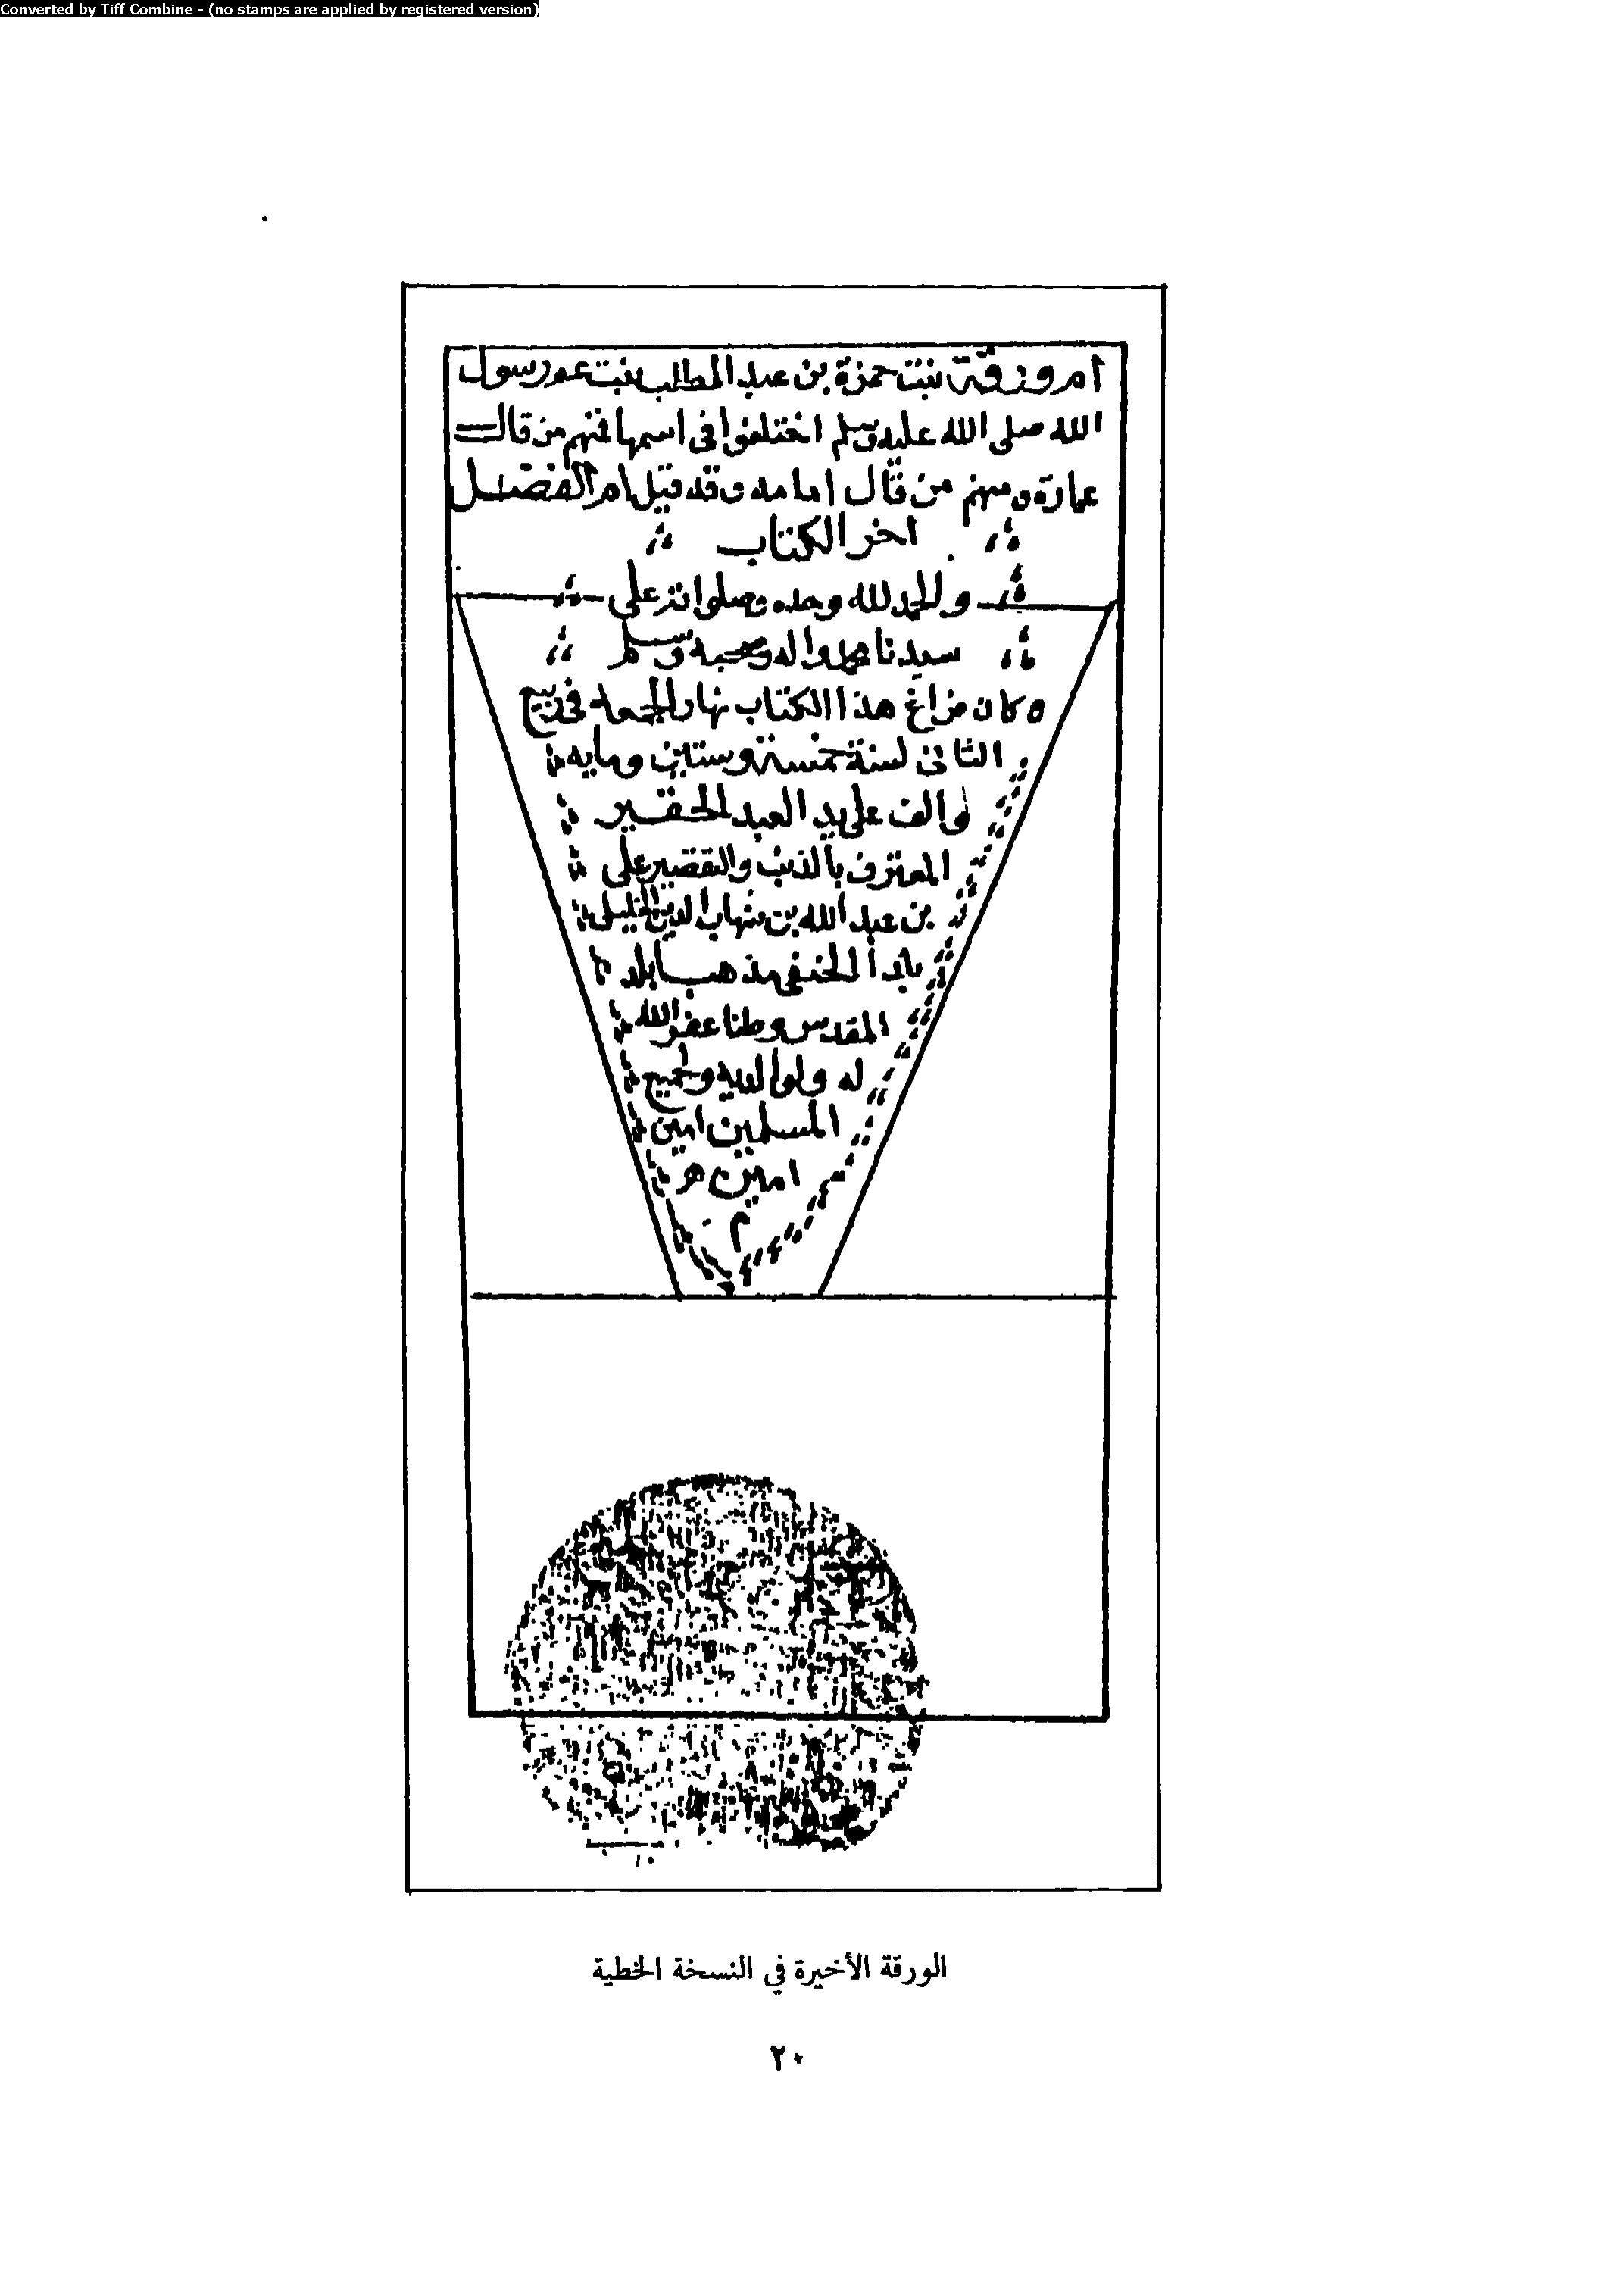 Converted by Tiff Combine - (no stamps are applied by registered version)
ام ورقة بنت حمزة بن عبد المطلب بنت عم رسول
الله صلى الله عليه وسلم اختلفوا في اسمها فمنهم من قال
عمارة ومنهم من قال امامه وقد قيل ام الفضل
اخر الكتاب
والحمد لله وحده وصلواته على
سيدنا محمد واله وصحبه وسلم
وكان فراغ هذا الكتاب نهار الجمعه في ربيع
الثاني لسنة خمسة وستين ومايه
والف على يد العبد الحقير
المعترف بالذنب والتقصير على
بن عبد الله بن شهاب الدين الخليلى
بلدا الحنفي مذهبا
المقدس وطنا عفر الله
له ولوالديه ولجميع
المسلمين امين
امين
م
الورقة الأخيرة في النسخة الخطية
٢٠